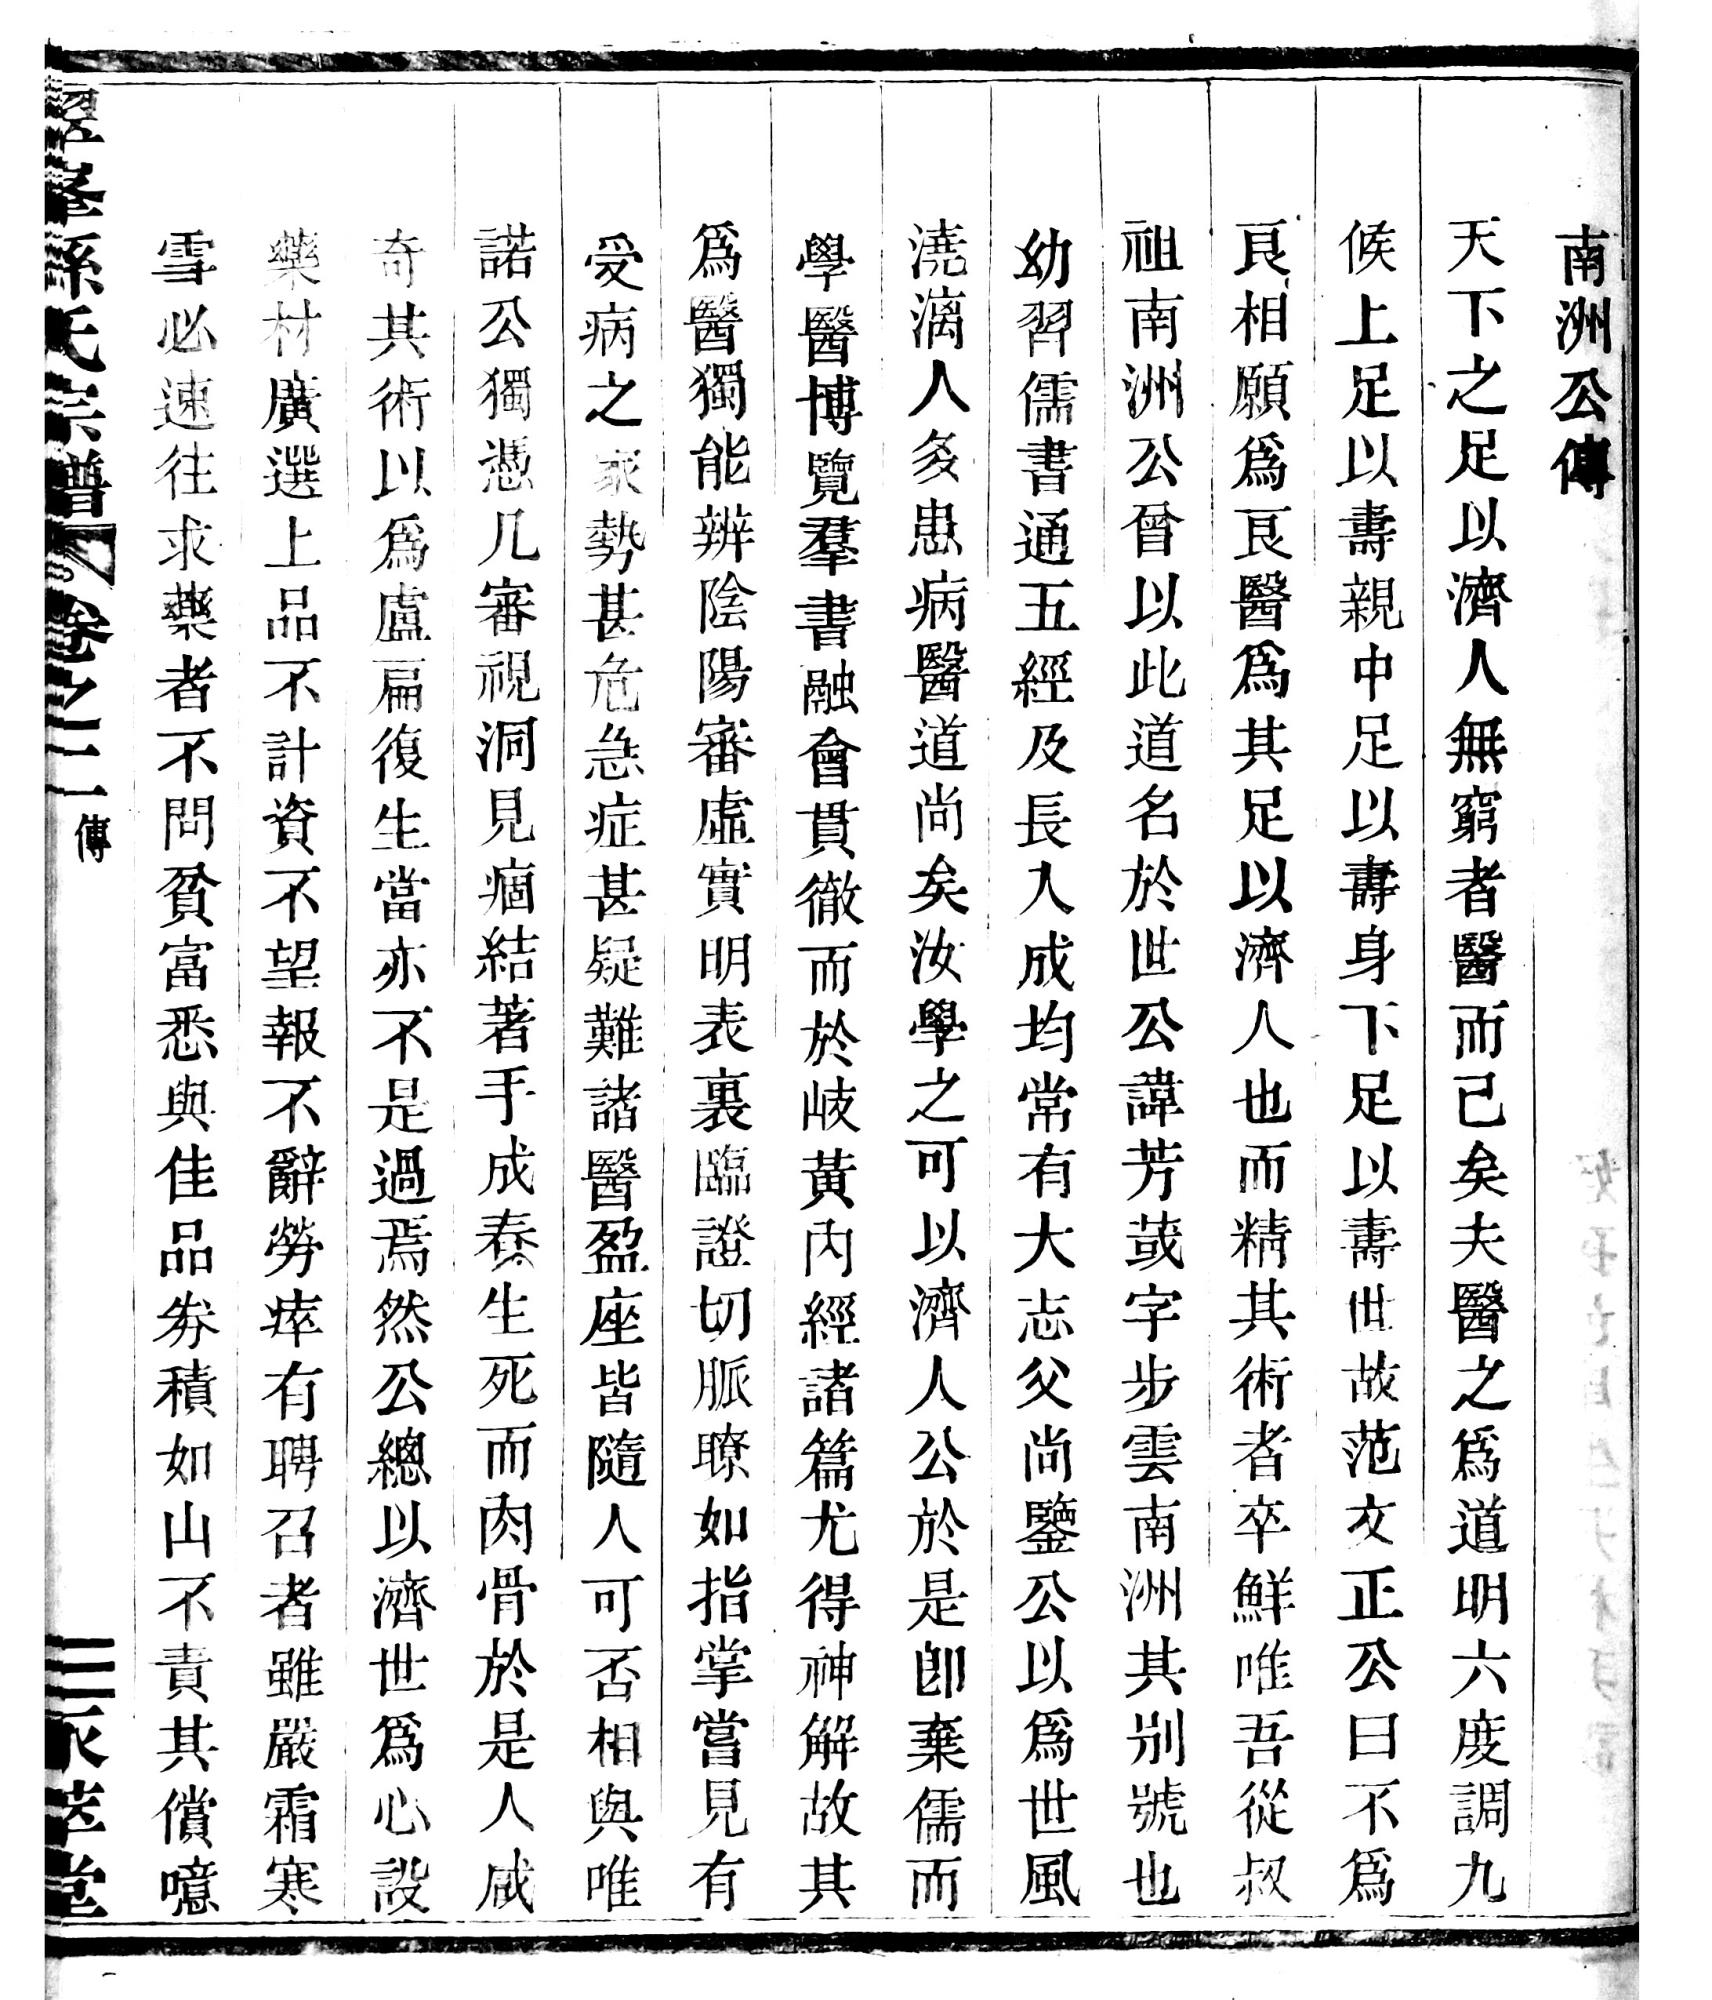 南洲公傳
天下之足以濟人無窮者醫而已矣夫醫之爲道明六度調九
候上足以壽親中足以壽身下足以壽世故范文正公曰不爲
良相願爲良醫爲其足以濟人也而精其術者卒鮮唯吾從叔
祖南洲公曾以此道名於世公諱芳莪字步雲南洲其別號也
幼習儒書通五經及長入成均常有大志父尚鑒公以爲世風
澆漓人多患病醫道尚矣汝學之可以濟人公於是卽棄儒而
學醫博覽羣書融會貫徹而於岐黃內經諸篇尤得神解故其
爲醫獨能辨陰陽審虛實明表裏臨證切脈瞭如指掌嘗見有
受病之家勢甚危急症甚疑難諸醫盈座皆隨人可否相與唯
諾公獨憑几審視洞見痼結著手成春生死而肉骨於是人咸
奇其術以爲盧扁復生當亦不是過焉然公總以濟世爲心設
藥材廣選上品不計資不望報不辭勞瘁有聘召者雖嚴霜寒
雪必速往求藥者不問貧富悉與佳品劵積如山不責其償噫
孫氏宗譜 卷之二 傳 萃堂